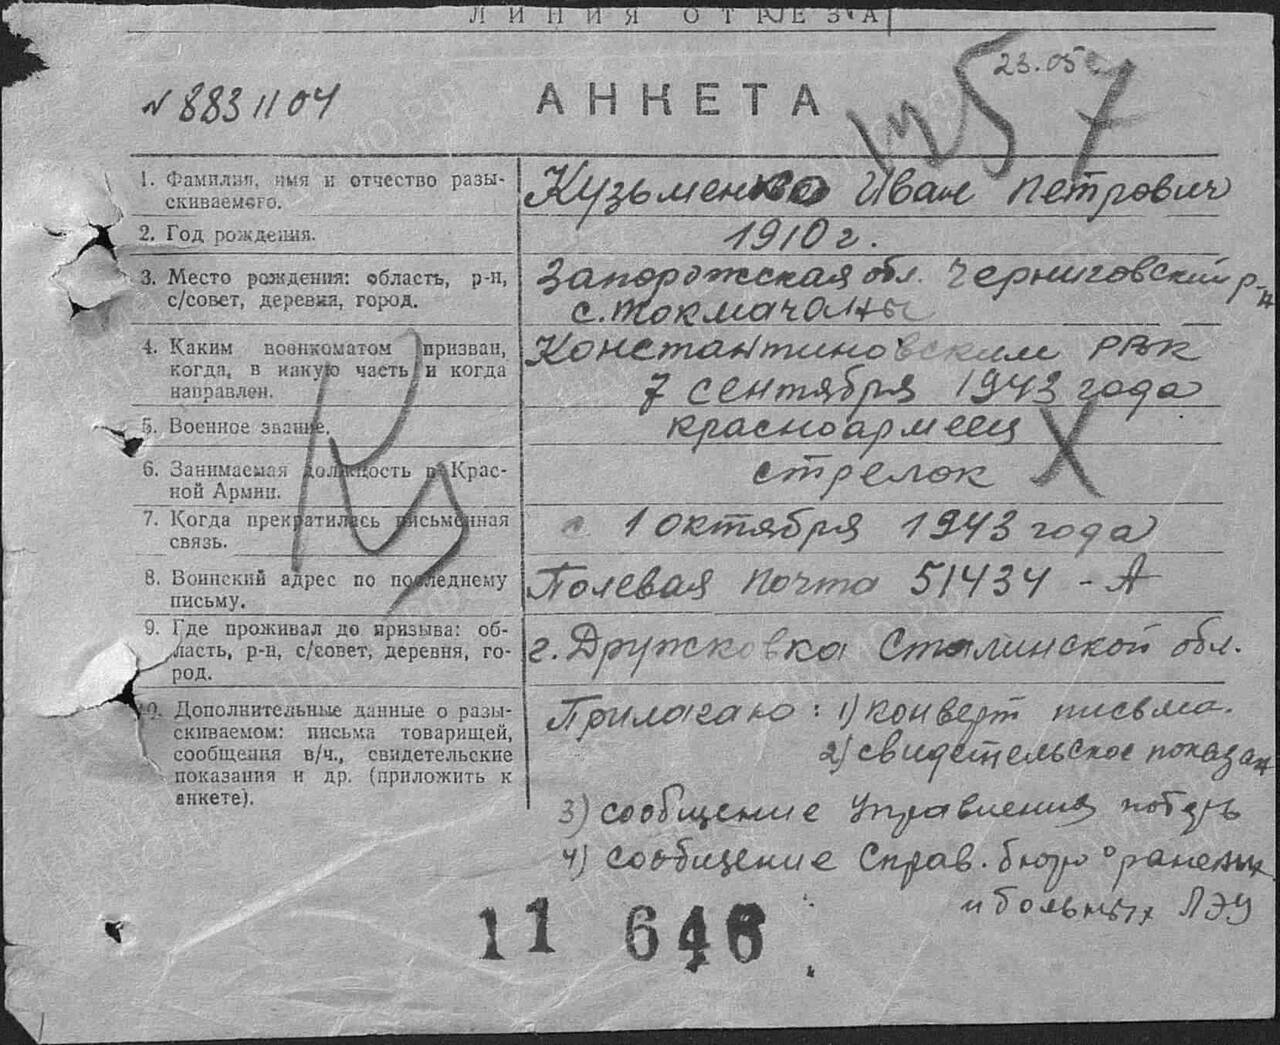 ЛИНИЯ ОТРЕЗА
23.05
N 8831104
АНКЕТА
57
1. Фамилия, имя и отчество разы-
скиваемого.
Кузьменко Иван Петрович
2. Год рождения.
1910 г.
3. Место рождения: область, р-н,
с/совет, деревня, город.
Запорожская обл. Черниговский р-н
с. Токмачаны
4. Каким военкоматом призван,
когда, в какую часть и когда
направлен.
Константиновским РВК
7 сентября 1943 года
5. Военное звание.
красноармеец
6. Занимаемая должность в Крас-
ной Армии.
стрелок
7. Когда прекратилась письменная
связь.
с 1 октября 1943 года
8. Воинский адрес по последнему
письму.
Полевая почта 51434 - А
9. Где проживал до призыва: об-
ласть, р-н, с/совет, деревня, го-
род.
г. Дружковка Сталинской обл.
10. Дополнительные данные о разы-
скиваемом: письма товарищей,
сообщения в/ч., свидетельские
показания и др. (приложить к
анкете).
Прилагаю: 1) конверт письма.
2) свидетельское показан
3) сообщение Управления потерь
4) сообщение Справ. бюро о раненых
и больных ЛЭУ
11 646